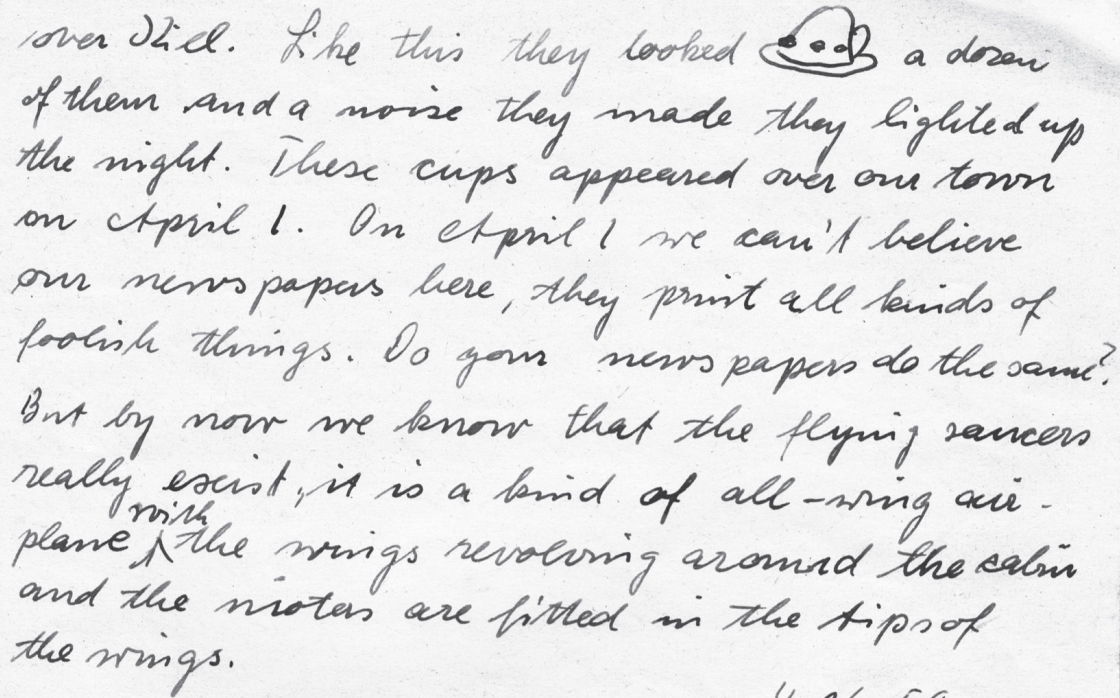 over Kiel. Like this they looked a dozen
of them and a noise they made they lighted up
the night. These cups appeared over our town
on April 1. On April 1 we can't believe
our newspapers here, they print all kinds of
foolish things. Do your newspapers do the same?
But by now we know that the flying saucers
really exist, it is a kind of all-wing air-
with
plane, the wings revolving around the cabin
and the motors are fitted in the tips of
the wings.